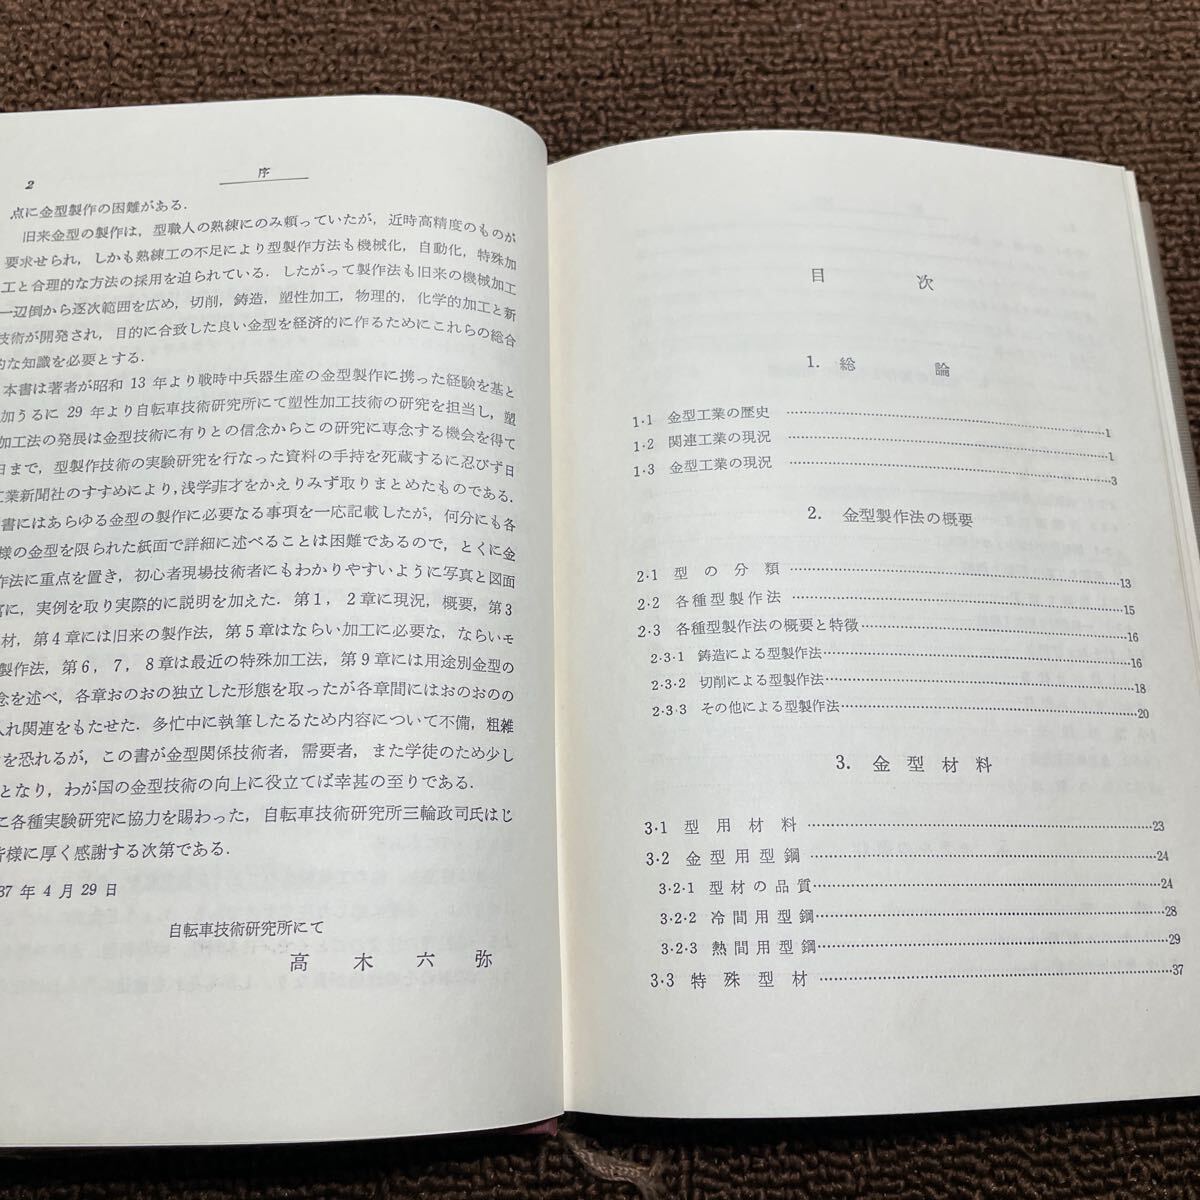 2
序
点に金型製作の困難がある.
旧来金型の製作は, 型職人の熟練にのみ頼っていたが, 近時高精度のものが
要求せられ, しかも熟練工の不足により型製作方法も機械化, 自動化, 特殊加
工と合理的な方法の採用を迫られている. したがって製作法も旧来の機械加工
一辺倒から逐次範囲を広め, 切削, 鋳造, 塑性加工, 物理的, 化学的加工と新
技術が開発され, 目的に合致した良い金型を経済的に作るためにこれらの総合
的な知識を必要とする.
本書は著者が昭和 13 年より戦時中兵器生産の金型製作に携った経験を基と
加うるに 29 年より自転車技術研究所にて塑性加工技術の研究を担当し, 塑
加工法の発展は金型技術に有りとの信念からこの研究に専念する機会を得て
日まで, 型製作技術の実験研究を行なった資料の手持を死蔵するに忍びず日
工業新聞社のすすめにより, 浅学非才をかえりみず取りまとめたものである.
書にはあらゆる金型の製作に必要なる事項を一応記載したが, 何分にも各
様の金型を限られた紙面で詳細に述べることは困難であるので, とくに金
作法に重点を置き, 初心者現場技術者にもわかりやすいように写真と図面
に, 実例を取り実際的に説明を加えた. 第1, 2章に現況, 概要, 第3
材, 第4章には旧来の製作法, 第5章はならい加工に必要な, ならいモ
製作法, 第6, 7, 8章は最近の特殊加工法, 第9章には用途別金型の
念を述べ, 各章おのおの独立した形態を取ったが各章間にはおのおのの
入れ関連をもたせた. 多忙中に執筆したるため内容について不備, 粗雑
を恐れるが, この書が金型関係技術者, 需要者, また学徒のため少し
となり, わが国の金型技術の向上に役立てば幸甚の至りである.
に各種実験研究に協力を賜わった, 自転車技術研究所三輪政司氏はじ
皆様に厚く感謝する次第である.
37 年 4 月 29 日
自転車技術研究所にて
高木六弥
目次
1. 総論
1·1 金型工業の歴史 ……1
1·2 関連工業の現況 ……1
1·3 金型工業の現況 ……3
2. 金型製作法の概要
2·1 型の分類 ……13
2·2 各種型製作法 ……15
2·3 各種型製作法の概要と特徴 ……16
2·3·1 鋳造による型製作法 ……16
2·3·2 切削による型製作法 ……18
2·3·3 その他による型製作法 ……20
3. 金型材料
3·1 型用材料 ……23
3·2 金型用型鋼 ……24
3·2·1 型材の品質 ……24
3·2·2 冷間用型鋼 ……28
3·2·3 熱間用型鋼 ……29
3·3 特殊型材 ……37